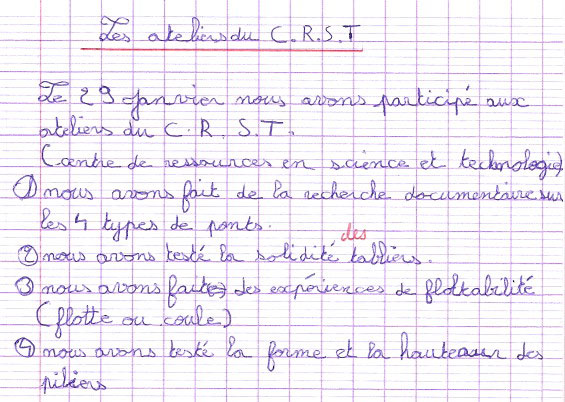 Les ateliers du C.R.S.T
Le 29 Janvier nous avons participé aux
ateliers du C.R.S.T.
(centre de ressources en science et technologie)
① nous avons fait de la recherche documentaire sur
les 4 types de ponts.
② nous avons testé la solidité des tabliers.
③ nous avons faites des expériences de flottabilité
(flotte ou coule)
④ nous avons testé la forme et la hauteur des
piliers